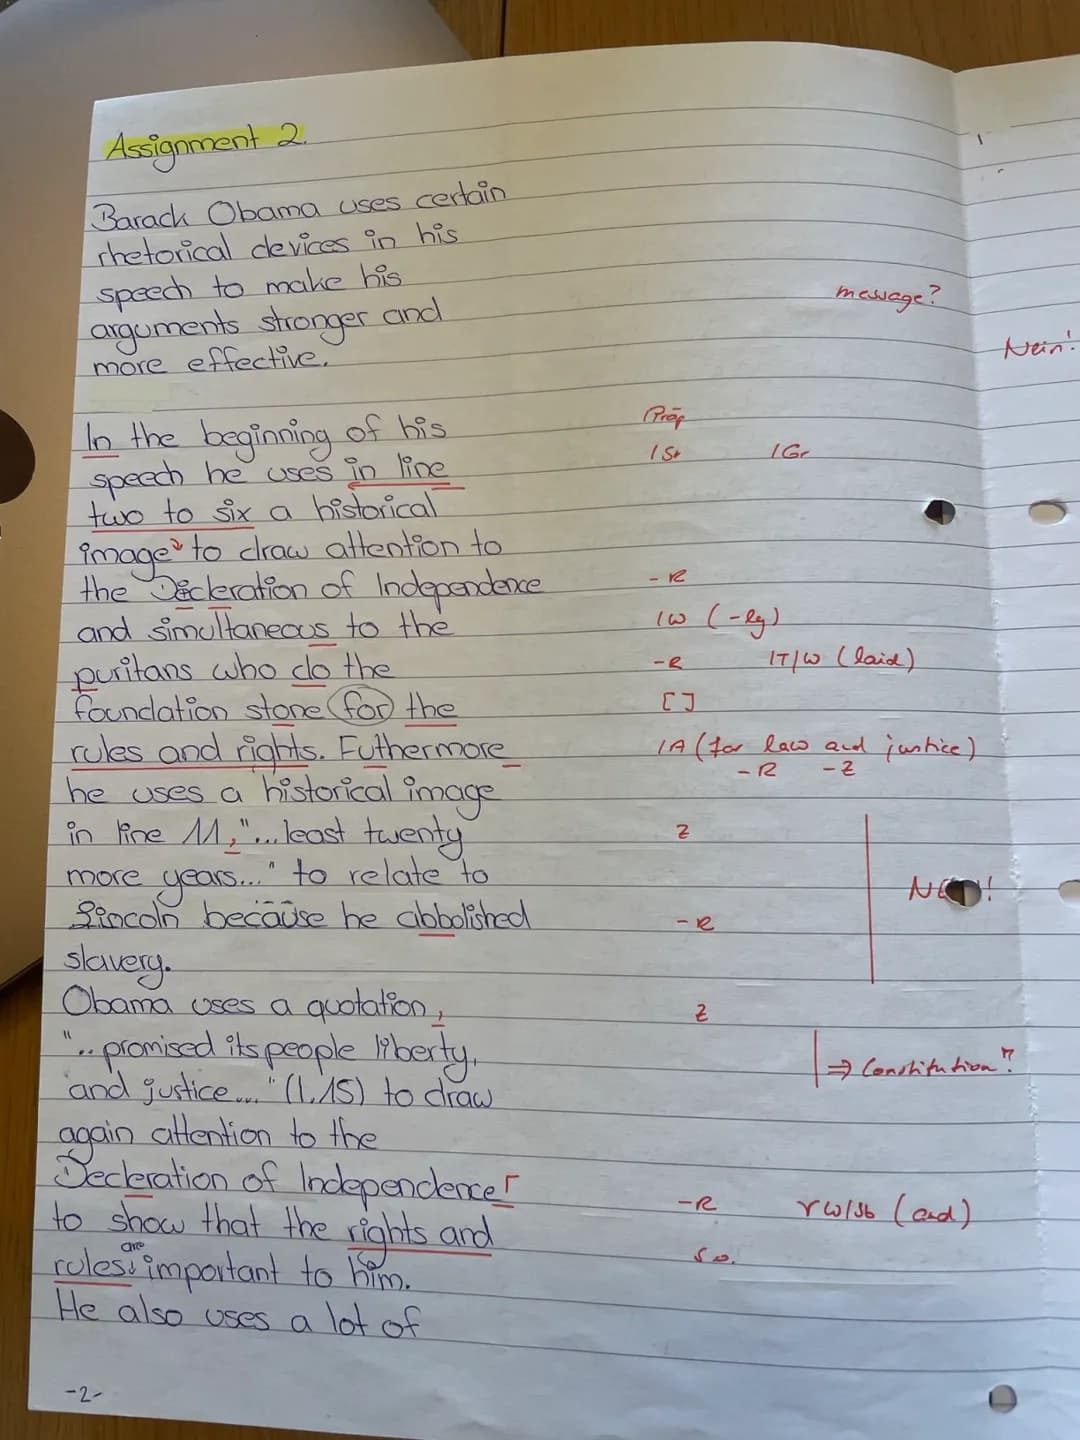 Assignment 2.
Barack Obama uses certain
rhetorical devices in his
speech to make his
arguments stronger and message?
more effective. Nein!
In the beginning of his Präp
speech he uses in line 1St 1Gr
two to six a historical
image to draw attention to
the Decleration of Independence -R
and simultaneous to the 1W (-ly)
puritans who do the -R 1T/W (laid)
foundation stone for the []
rules and rights. Futhermore 1A (for law and justice)
-R -Z
he uses a historical image
in line 11, "...least twenty Z
more years..." to relate to NEIN!
Lincoln because he abbolished -R
slavery.
Obama uses a quotation, Z
"... promised its people liberty,
⇒ Constitution?
and justice..." (l.15) to draw
again attention to the
Decleration of Independence -R
to show that the rights and (and)
s.o.
are
rules important to him.
He also uses a lot of
-2-